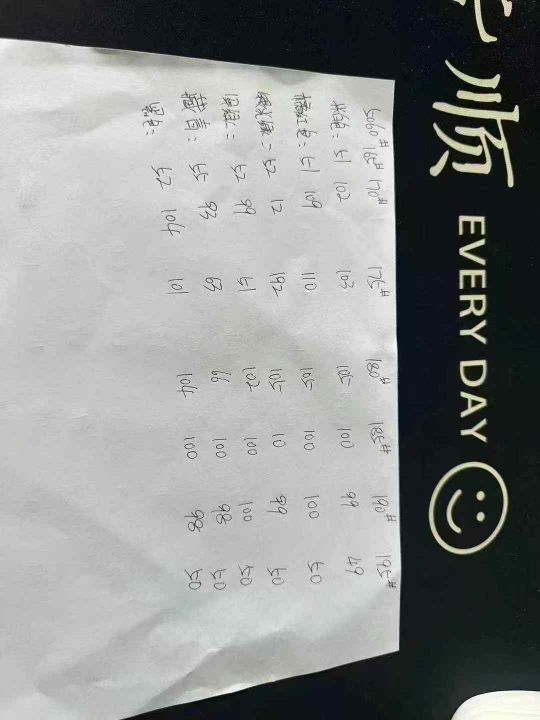 顺
EVERY DAY
5060# 165# 170# 175# 180# 185# 190# 195#
51 102 103 105 100 99 49
橘红色: 51 109 110 105 100 100 50
52 12 192 105 10 99 50
52 99 51 102 100 100 50
藏青: 55 93 63 66 100 98 50
52 104 101 104 100 98 50